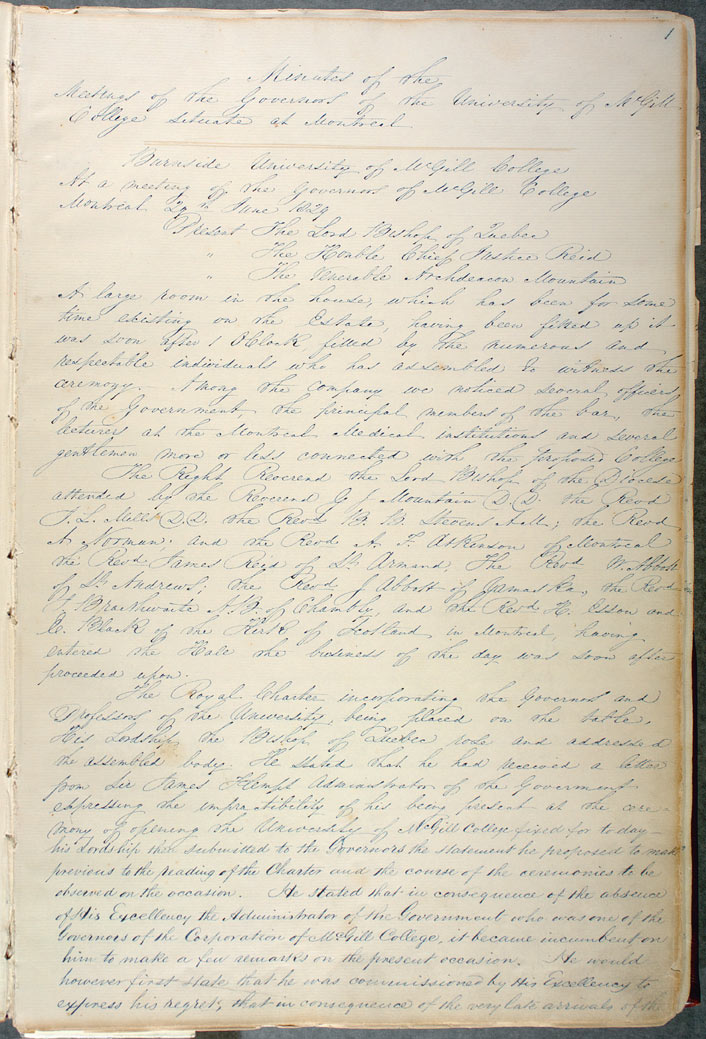 1
Minutes of the
Meetings of the Governors of the University of McGill
College situate at Montreal
Burnside University of McGill College
At a meeting of the Governors of McGill College
Montreal 29th June 1829
Present The Lord Bishop of Quebec
" The Honble Chief Justice Reid
" The Venerable Archdeacon Mountain
A large room in the house, which has been for some
time existing on the Estate, having been fitted up it
was soon after 1 OClock filled by the numerous and
respectable individuals who has assembled to witness the
ceremony. Among the company we noticed several officers
of the Government, the principal members of the bar, the
lecturers at the Montreal Medical institutions and several
gentlemen more or less connected with the proposed College
The Right Reverend the Lord Bishop of the Diocese
attended by the Reverend G J Mountain D.D. the Revd
J. L. Mills D.D. the Revd B. B. Stevens A.M.; the Revd
A Norman; and the Revd A. F. Atkinson of Montreal
the Revd James Reid of St. Armand, The Revd W. Abbott
of St. Andrews; the Revd J Abbott of Yamaska, the Revd
J Braithwaite A.B. of Chambly, and the Revd H. Esson and
E. Black of the Kirk of Scotland in Montreal, having
entered the Hall the business of the day was soon after
proceeded upon.
The Royal Charter incorporating the Governors and
Professors of the University, being placed on the table,
His Lordship the Bishop of Quebec rose and addressed
the assembled body. He stated that he had received a letter
from Sir James Kempt Administrator of the Government
expressing the impractibility of his being present at the cere-
mony of opening the University of McGill College fixed for to day-
his Lordship then submitted to the Governors the statement he proposed to make
previous to the reading of the Charter and the course of the ceremonies to be
observed on the occasion. He stated that in consequence of the absence
of His Excellency the Administrator of the Government who was one of the
Governors of the Corporation of McGill College, it became incumbent on
him to make a few remarks on the present occasion. He would
however first state that he was commissioned by His Excellency to
express his regret, that in consequence of the very late arrivals of the